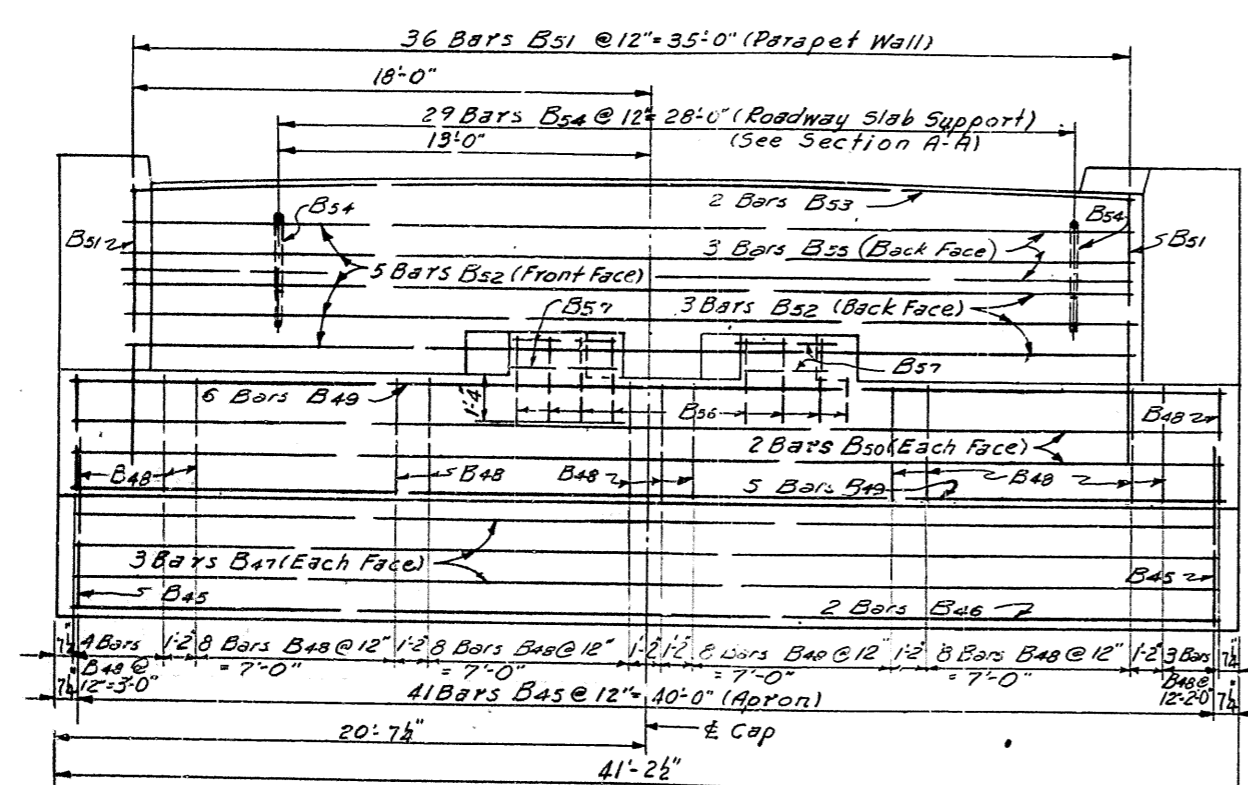 36 Bars B51 @ 12" = 35'-0" (Parapet Wall)
18'-0"
29 Bars B54 @ 12" = 28'-0" (Roadway Slab Support)
13'-0"
(See Section A-A)
2 Bars B53
B54
B54
B51
B51
3 Bars B55 (Back Face)
5 Bars B52 (Front Face)
3 Bars B52 (Back Face)
B57
B57
6 Bars B49
1'-4"
B56
B48
2 Bars B50 (Each Face)
B48
B48
B48
B48
5 Bars B49
3 Bars B47 (Each Face)
B45
B45
2 Bars B46
7¼" 4 Bars 1'-2" 8 Bars B48 @ 12" 1'-2" 8 Bars B48 @ 12" 1'-2" 1'-2" 8 Bars B48 @ 12" 1'-2" 8 Bars B48 @ 12" 1'-2" 3 Bars 7¼"
B48 @ = 7'-0" = 7'-0" = 7'-0" = 7'-0" B48 @
7¼" 12" = 3'-0" 12" = 2'-0" 7¼"
41 Bars B45 @ 12" = 40'-0" (Apron)
20'-7¼"
℄ Cap
41'-2½"